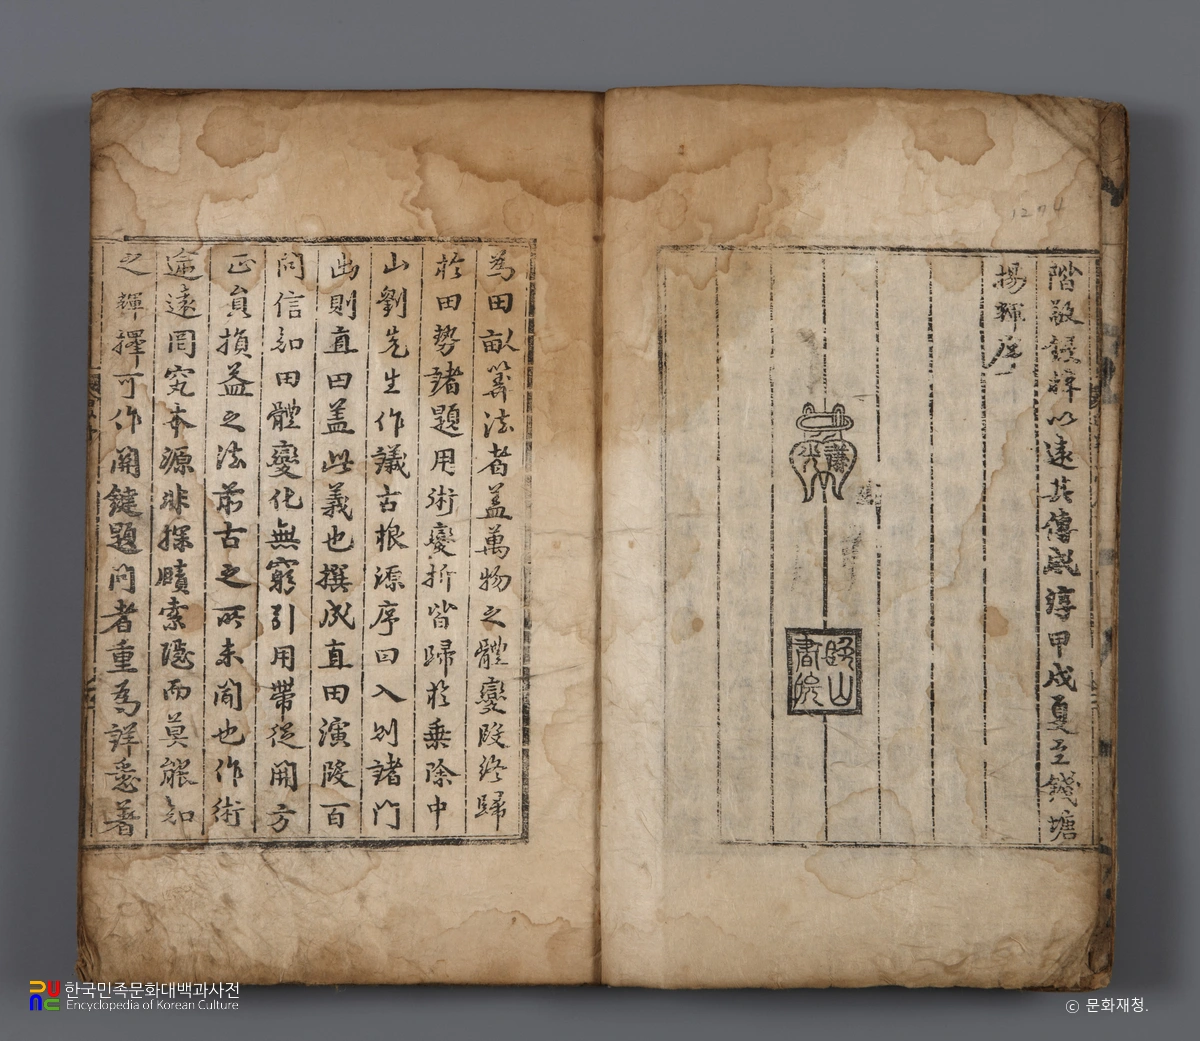 階敬鋟梓以遠其傳咸淳甲戌夏至錢塘
揚輝序
謙光
書院
1274
為田畝筭法者蓋萬物之體變段終歸
於田勢諸題用術變折皆歸於乗除中
山劉先生作議古根源序曰入則諸門
出則直田盖此義也撰成直田演段百
問信知田體變化無窮引用帶從開方
正負損益之法前古之所未聞也作術
逾遠罔究本源非探賾索隱而莫能知
之輝擇可作關鍵題問者重為詳悉著
한국민족문화대백과사전
Encyclopedia of Korean Culture
© 문화재청.